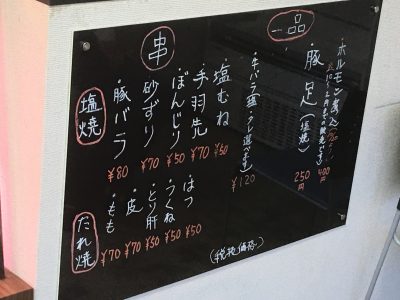 一品
・ホルモン煮込
・豚足(塩焼) 250円
・牛バラ(塩・タレ選べます) ¥120
串
塩焼
・塩むね ¥50
・手羽先 ¥70
・ぼんじり ¥50
・砂ずり ¥70
・豚バラ ¥80
たれ焼
・はつ ¥50
・つくね ¥50
・とり肝 ¥50
・皮 ¥70
・もも ¥70
(税抜価格)